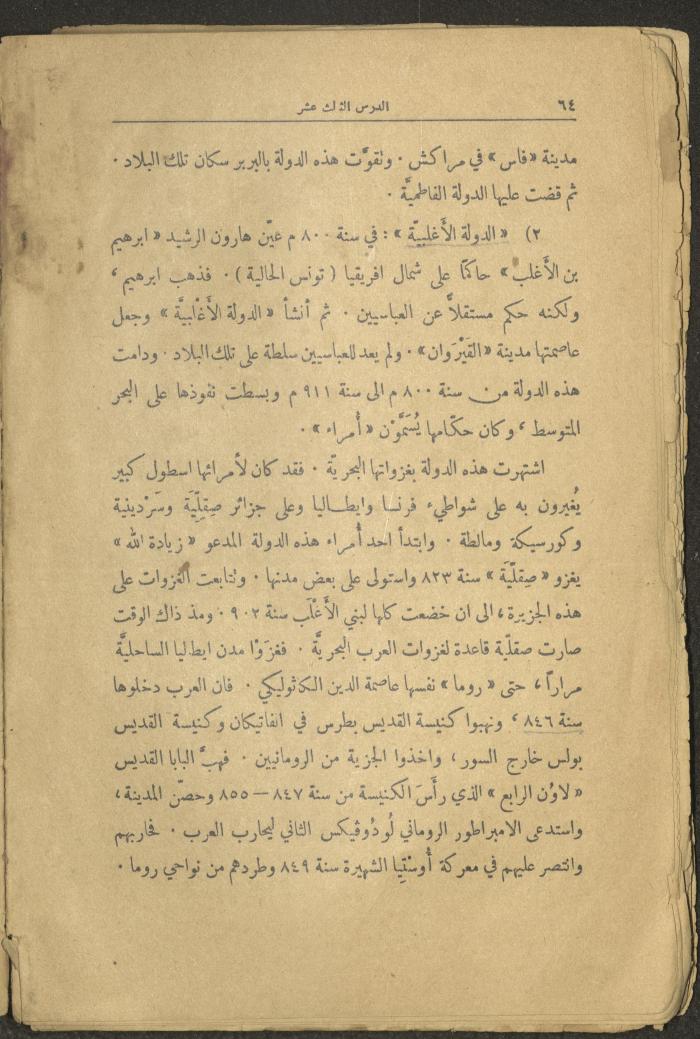 ٦٤
الدرس الثالث عشر
مدينة «فاس» في مراكش . وتقوَّت هذه الدولة بالبربر سكان تلك البلاد .
ثم قضت عليها الدولة الفاطميَّة .
٢) «الدولة الأَغلبيّة» : في سنة ٨٠٠ م عيّن هارون الرشيد «ابرهيم
بن الأَغلب» حاكمًا على شمال افريقيا (تونس الحالية) . فذهب ابرهيم ،
ولكنه حكم مستقلاًّ عن العباسيين . ثم أنشأ «الدولة الأَغْلبيَّة» وجعل
عاصمتها مدينة «القَيْرَوان» . ولم يعد للعباسيين سلطة على تلك البلاد . ودامت
هذه الدولة من سنة ٨٠٠ م الى سنة ٩١١ م وبسطت نفوذها على البحر
المتوسط ، وكان حكّامها يُسَمَّوْن «أُمراء» .
اشتهرت هذه الدولة بغزواتها البحريّة . فقد كان لأمرائها اسطول كبير
يُغيرون به على شواطيء فرنسا وايطاليا وعلى جزائر صِقِلِّيَة وسَرْدينية
وكورسيكة ومالطة . وابتدأ احد أُمراء هذه الدولة المدعو «زيادة الله»
يغزو «صِقلّيَة» سنة ٨٢٣ واستولى على بعض مدنها . وتتابعت الغزوات على
هذه الجزيرة ، الى ان خضعت كلها لبني الأَغْلَب سنة ٩٠٢ . ومذ ذاك الوقت
صارت صقلّية قاعدة لغزوات العرب البحريَّة . فغزَوْا مدن ايطاليا الساحليَّة
مراراً ، حتى «روما» نفسها عاصمة الدين الكاثوليكي . فان العرب دخلوها
سنة ٨٤٦ ، ونهبوا كنيسة القديس بطرس في الفاتيكان وكنيسة القديس
بولس خارج السور ، واخذوا الجزية من الرومانيين . فهبَّ البابا القديس
«لاوُن الرابع» الذي رأَسَ الكنيسة من سنة ٨٤٧ — ٨٥٥ وحصّن المدينة ،
واستدعى الامبراطور الروماني لُودُوڤيكس الثاني ليحارب العرب . فحاربهم
وانتصر عليهم في معركة أُوسْتِيا الشهيرة سنة ٨٤٩ وطردهم من نواحي روما .